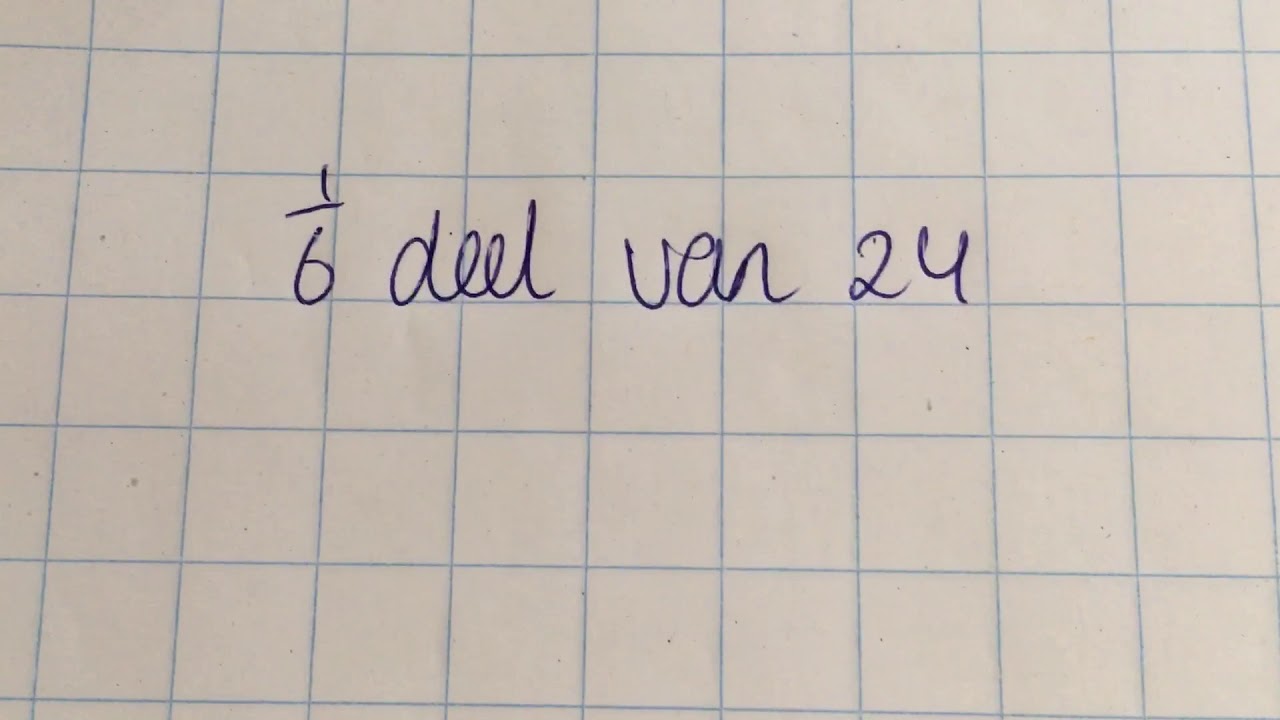 1/6 deel van 24